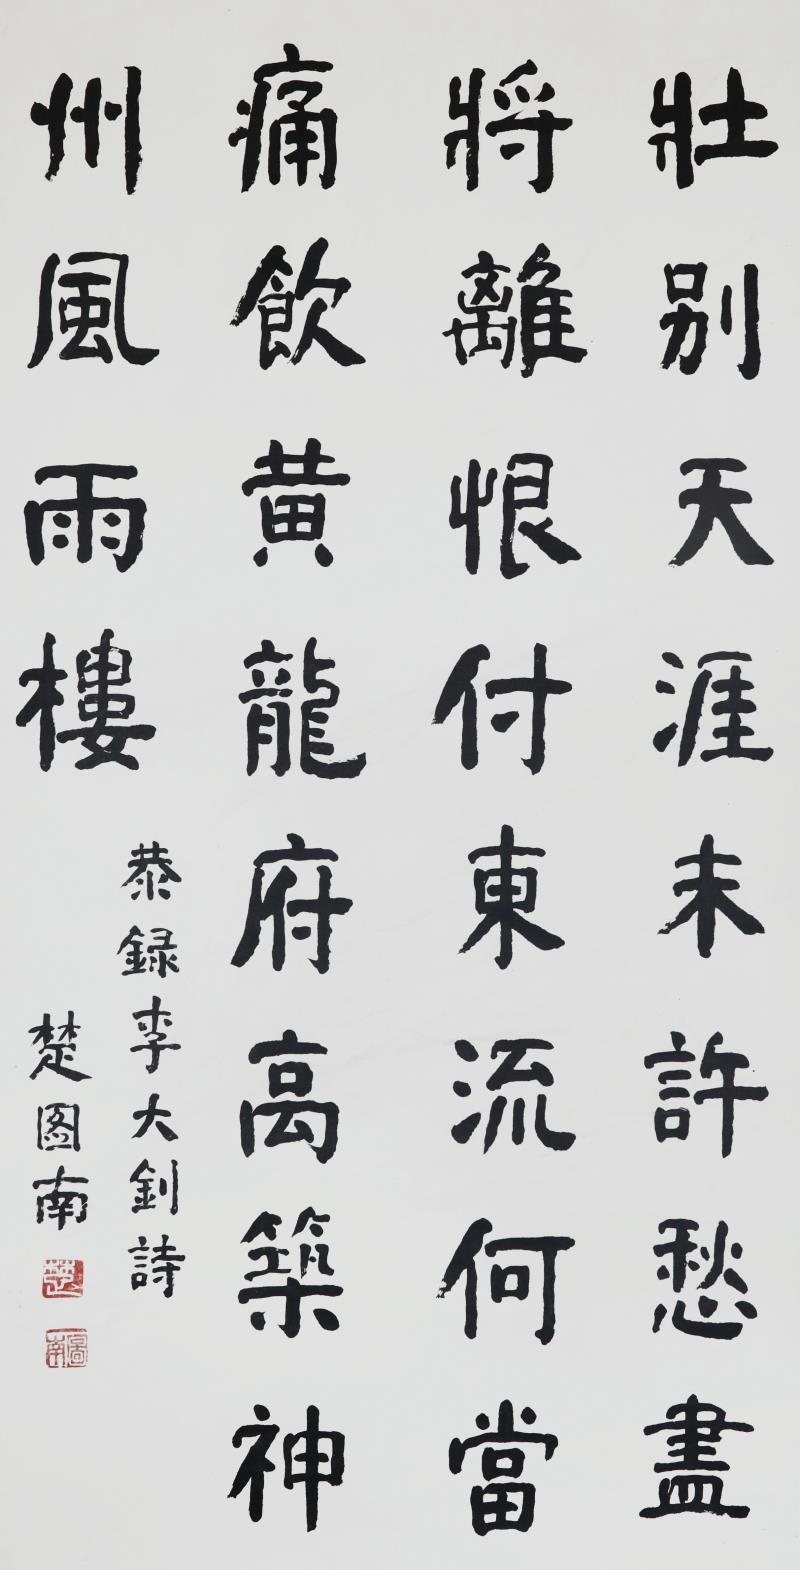 壯別天涯未許愁盡
將離恨付東流何當
痛飲黃龍府高築神
州風雨樓
恭録李大釗詩
楚圖南
楚
圖南